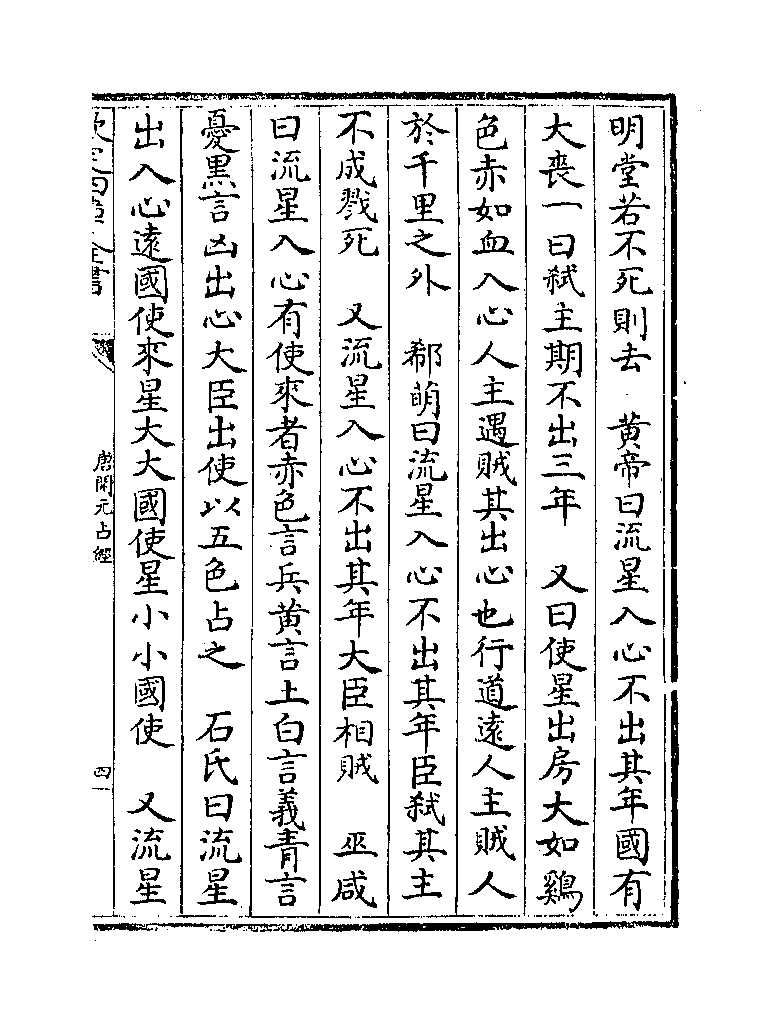 明堂若不死則去　黄帝曰流星入心不出其年國有
大喪一曰弑主期不出三年　又曰使星出房大如鷄
色赤如血入心人主遇賊其出心也行道遠人主賊人
於千里之外　郗萌曰流星入心不出其年臣弑其主
不成戮死　又流星入心不出其年大臣相賊　巫咸
曰流星入心有使來者赤色言兵黄言土白言義青言
憂黒言凶出心大臣出使以五色占之　石氏曰流星
出入心遠國使來星大大國使星小小國使　又流星
欽定四庫全書
唐開元占經
四